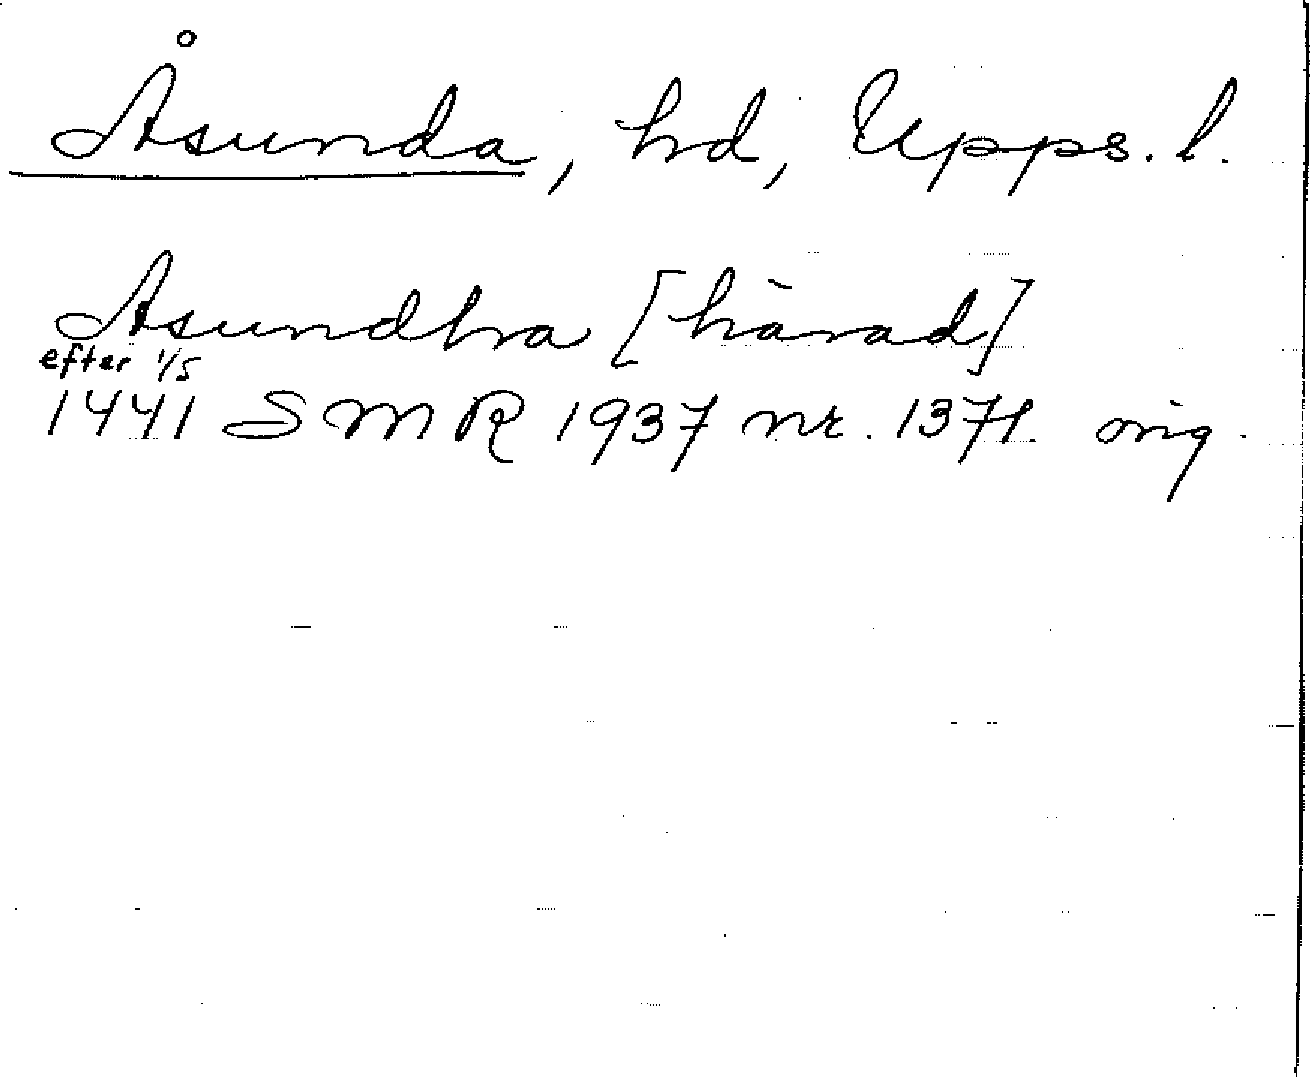 Åsunda, hd, Upps. l.
Asundhra [härad]
efter 1/5
1441 SMR 1937 nr. 1371. orig.